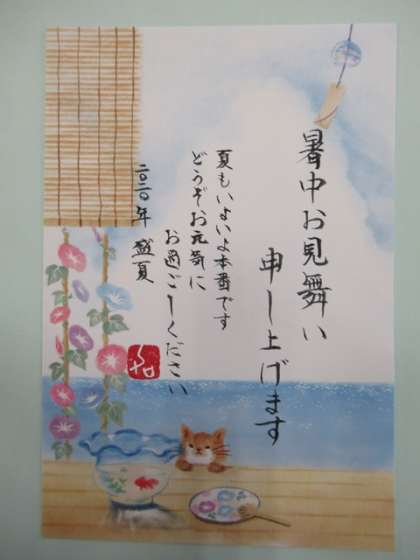 暑中お見舞い
申し上げます
夏もいよいよ本番です
どうぞお元気に
お過ごしください
二〇二〇年 盛夏